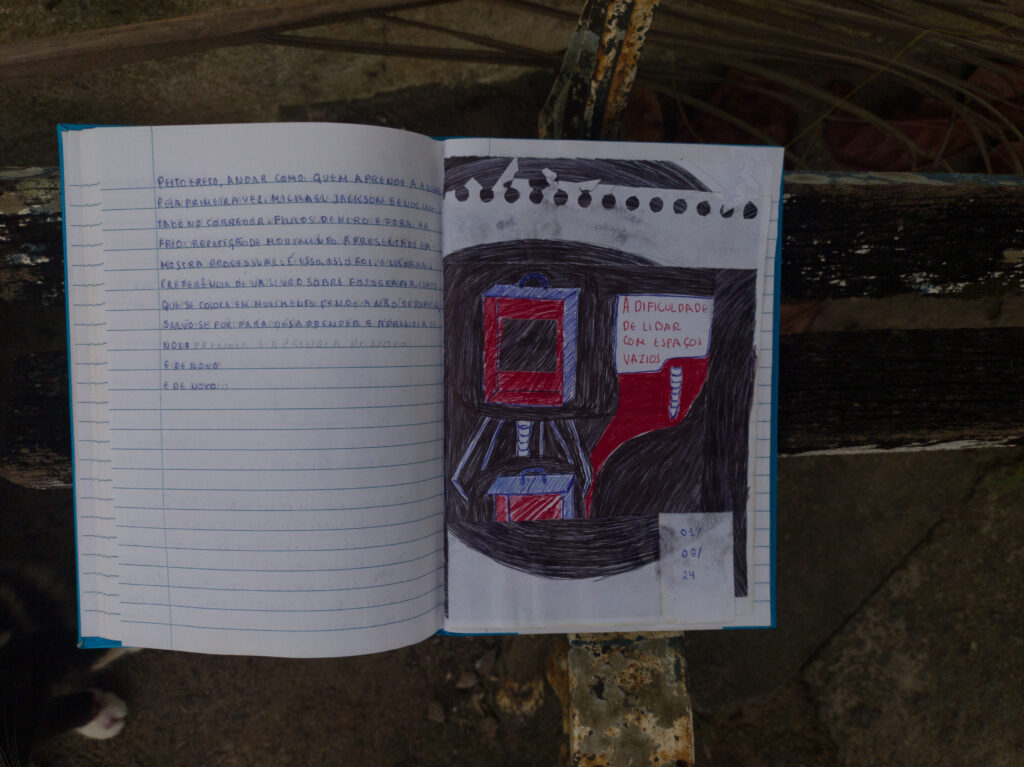 PEITO ERETO, ANDAR COMO QUEM APRENDE A
PELA PRIMEIRA VEZ. MICHAEL JACKSON SENDO CAN
TADO NO CORREDOR. DENTRO E FORA. AR
FRIO. REPETIÇÃO DE MOVIMENTO APRESENTADOS EM
MOSTRA PROCESSUAL. É ISSO.
PREFERÊNCIA LIVRO SOBRE FOTOGRAFIA.
QUE SE COLOCA EM MOVIMENTO NÃO SE
SALVO SE FOR PARA DESAPRENDER E APRENDER DE
NOVO
E DE NOVO
E DE NOVO
A DIFICULDADE
DE LIDAR
COM ESPAÇOS
VAZIOS
01/
08/
24